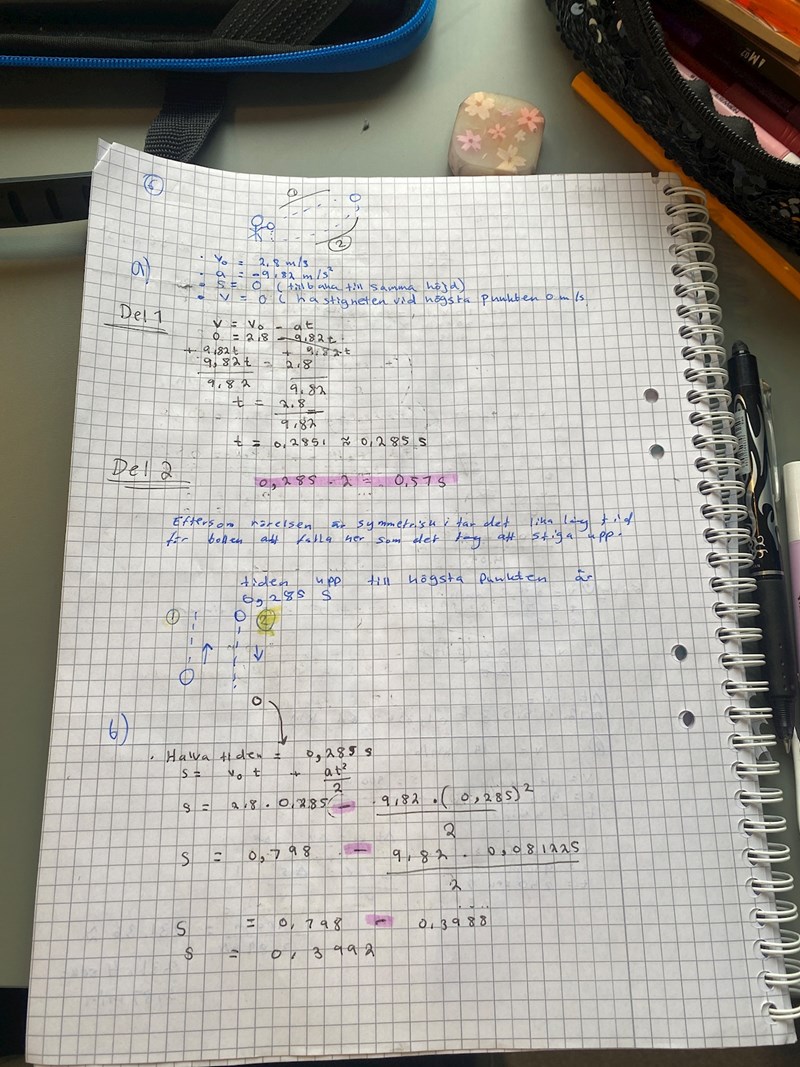 5
0
2
a)
• V₀ = 2,8 m/s
• a = -9,82 m/s²
• S = 0 (tillbaka till samma höjd)
• V = 0 (hastigheten vid högsta punkten 0 m/s
Del 1
V = V₀ - at
0 = 2.8 - 9,82t
+ 9,82t + 9,82t
9,82t = 2.8
9,82 9,82
t = 2.8
9,82
t = 0,2851 ≈ 0,285 s
Del 2
0,285 · 2 = 0,57 s
Eftersom rörelsen är symmetrisk i tar det lika lång tid
för bollen att falla ner som det tog att stiga upp.
tiden upp till högsta punkten är
0,285 s
1 2
b)
• Halva tiden = 0,285 s
s = v₀ t + at²
2
s = 2.8 · 0,285 - 9,82 · (0,285)²
2
S = 0,798 - 9,82 · 0,081225
2
S = 0,798 - 0,3988
S = 0,3992